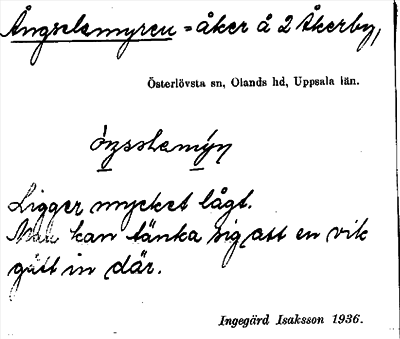 Ångselsmyren = åker å 2 Åkerby,
Österlövsta sn, Olands hd, Uppsala län.
Ligger mycket lågt.
Man kan tänka sig att en vik
gått in där.
Ingegärd Isaksson 1936.